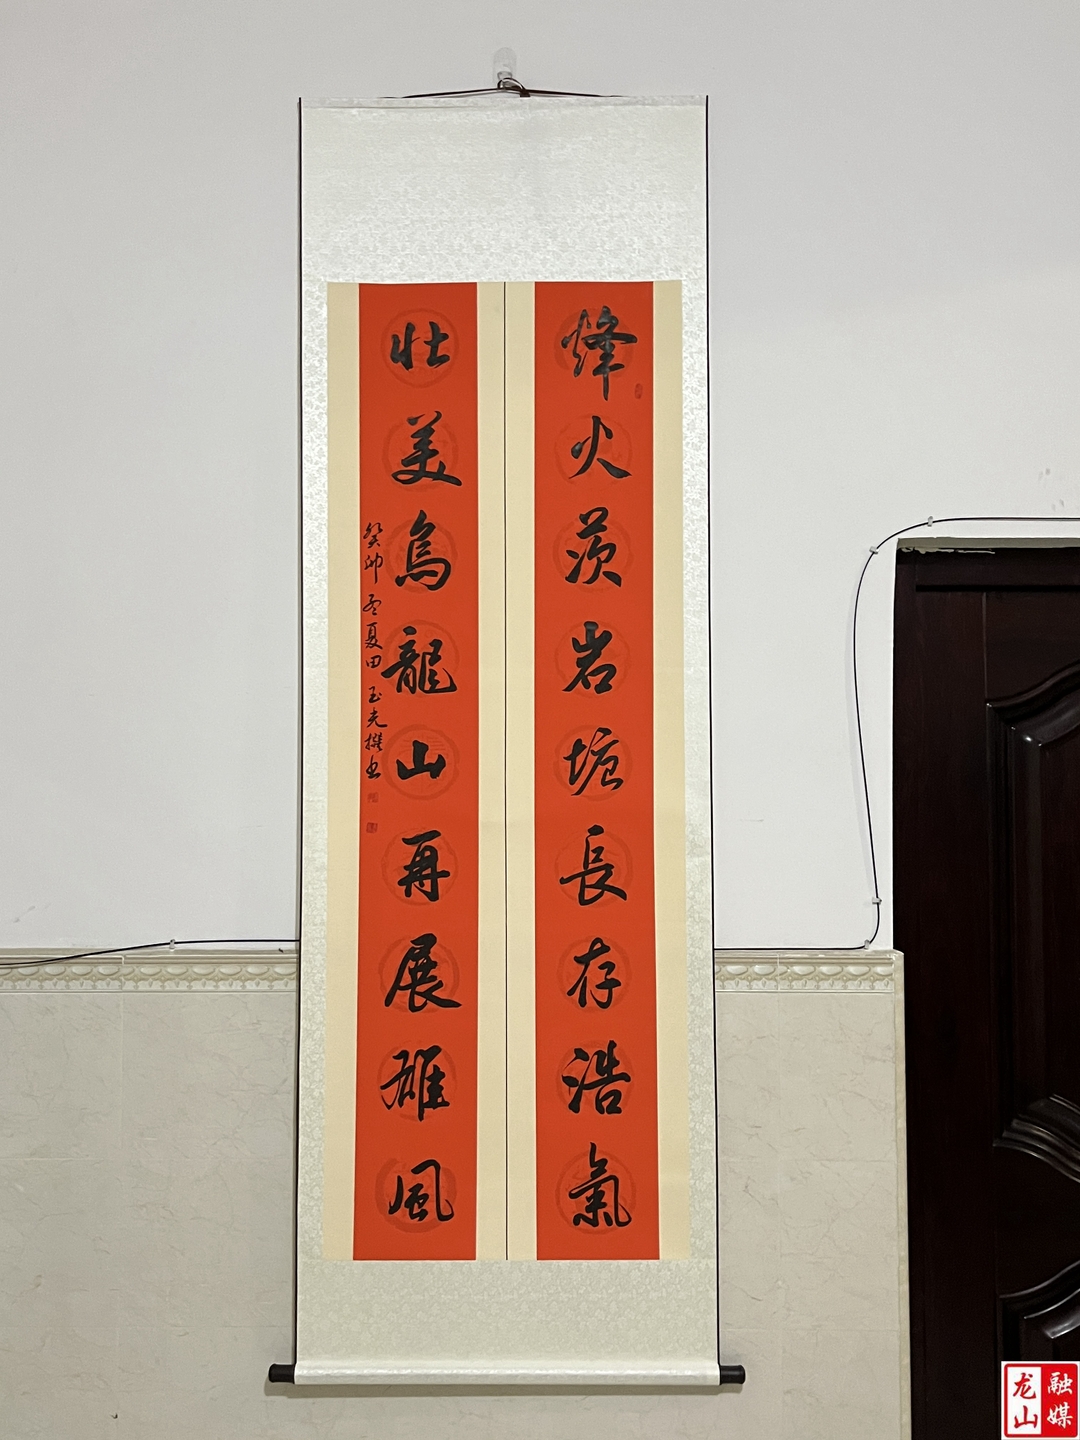 烽火茨岩塘長存浩氣
壮美烏龍山再展雄風
癸卯孟夏田玉光撰書
龙山
融媒